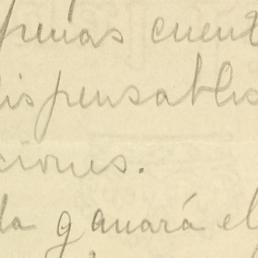 penas cuent
ispensables
ciones.
da ganará el